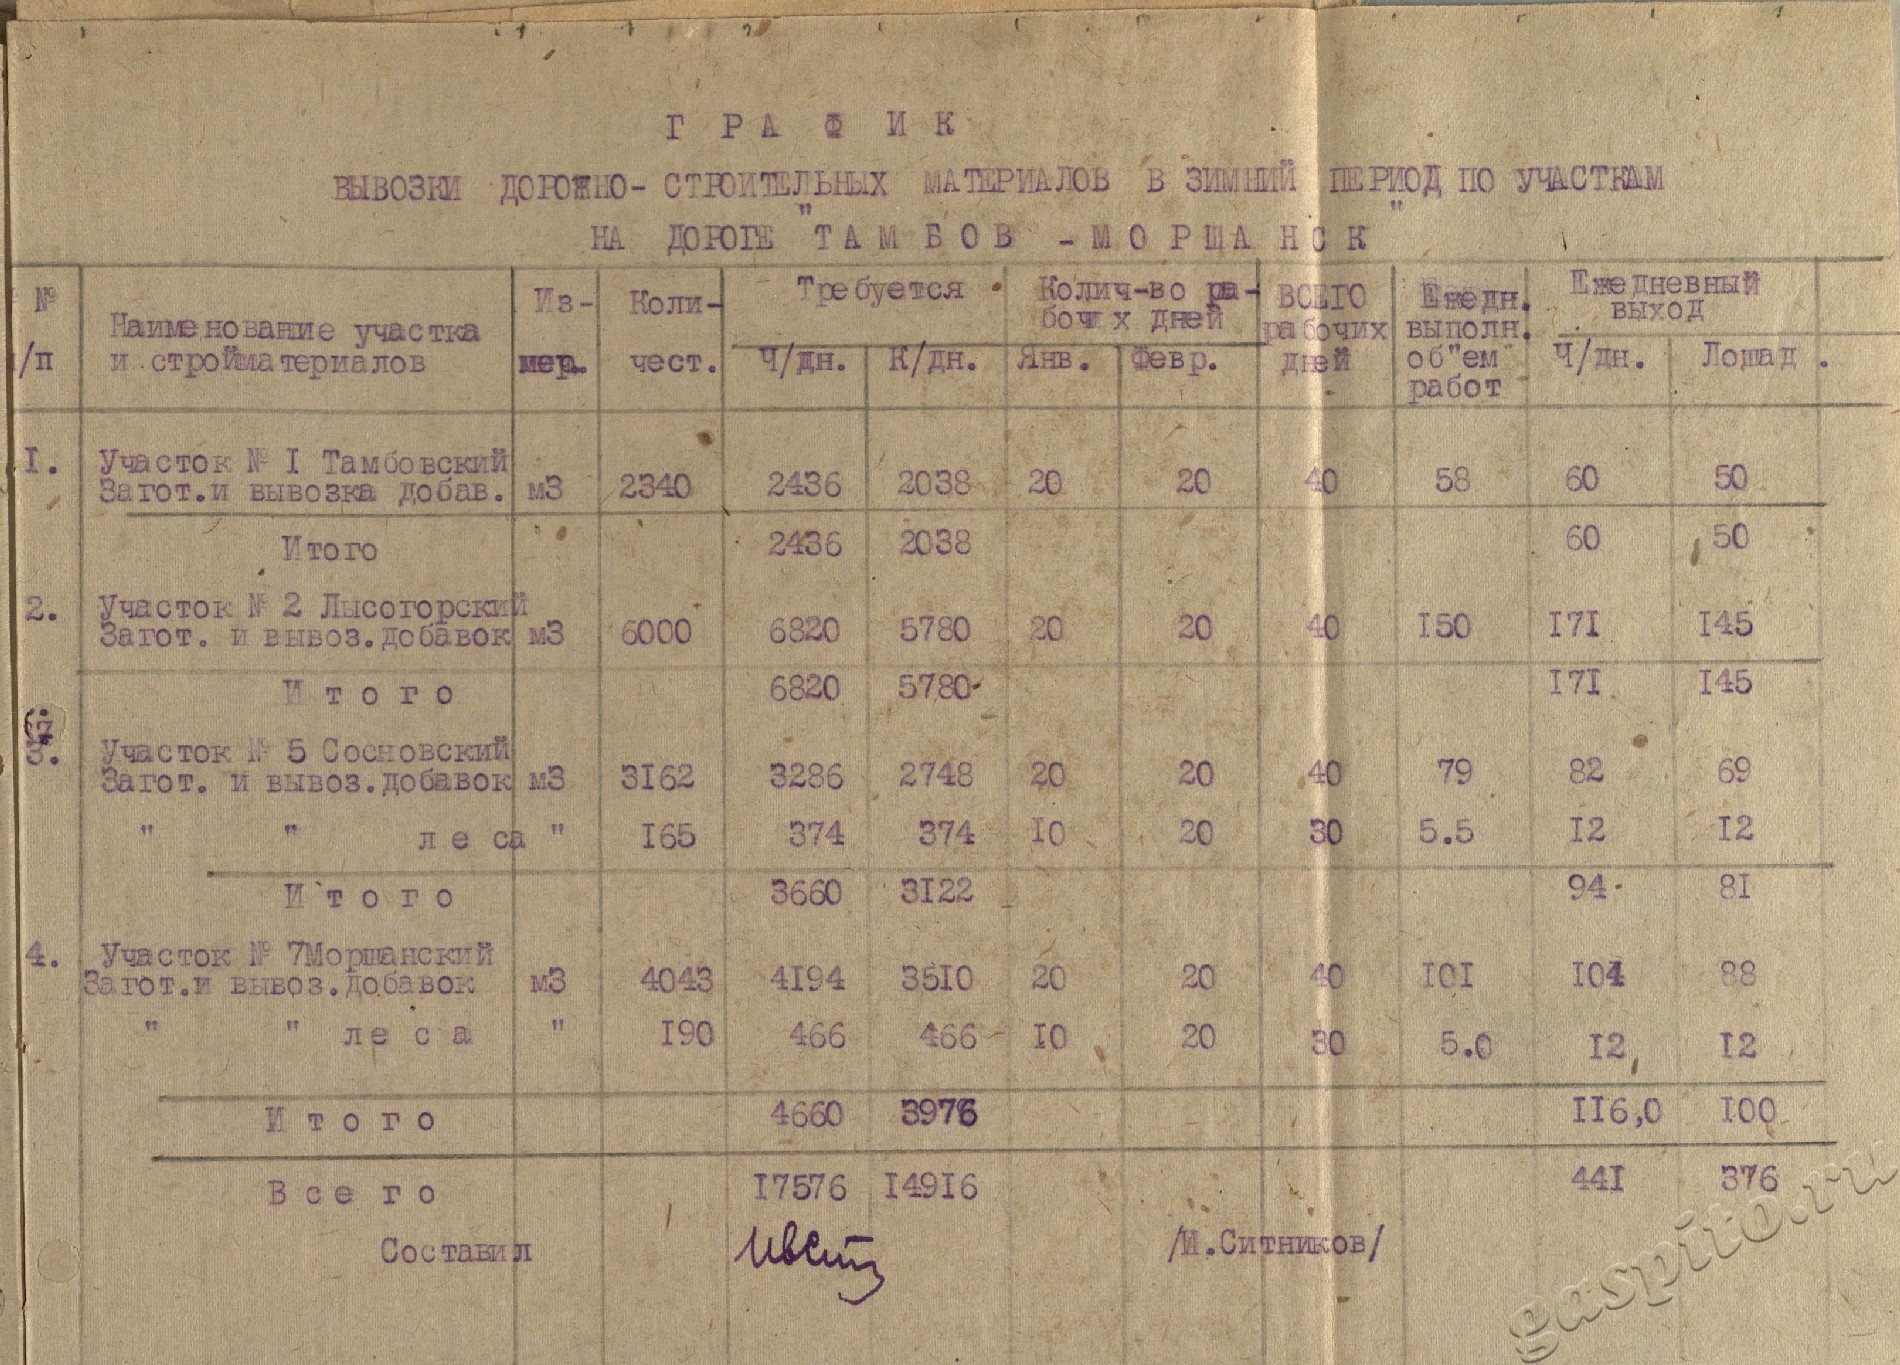 Г Р А Ф И К
ВЫВОЗКИ ДОРОЖНО- СТРОИТЕЛЬНЫХ МАТЕРИАЛОВ В ЗИМНИЙ ПЕРИОД ПО УЧАСТКАМ
НА ДОРОГЕ "ТАМБОВ - МОРШАНСК"
№ /п Наименование участка и стройматериалов Из-мер. Коли-чест. Требуется Ч/дн. К/дн. Колич-во ра-бочих дней Янв. Февр. ВСЕГО рабочих дней Ежедн. выполн. об"ем работ Ежедневный выход Ч/дн. Лошад.
I. Участок № I Тамбовский
Загот.и вывозка добав. м3 2340 2436 2038 20 20 40 58 60 50
Итого 2436 2038 60 50
2. Участок № 2 Лысогорский
Загот. и вывоз.добавок м3 6000 6820 5780 20 20 40 I50 I7I I45
И т о г о 6820 5780 I7I I45
3. Участок № 5 Сосновский
Загот. и вывоз.добавок м3 3I62 3286 2748 20 20 40 79 82 69
" " л е са " I65 374 374 I0 20 30 5.5 I2 I2
И т о г о 3660 3I22 94 8I
4. Участок № 7Моршанский
Загот.и вывоз.добавок м3 4043 4I94 35I0 20 20 40 I0I I04 88
" " ле с а " I90 466 466 I0 20 30 5.0 I2 I2
И т о г о 4660 3976 II6,0 I00
В с е г о I7576 I49I6 44I 376
Составил /И.Ситников/
gaspito.ru